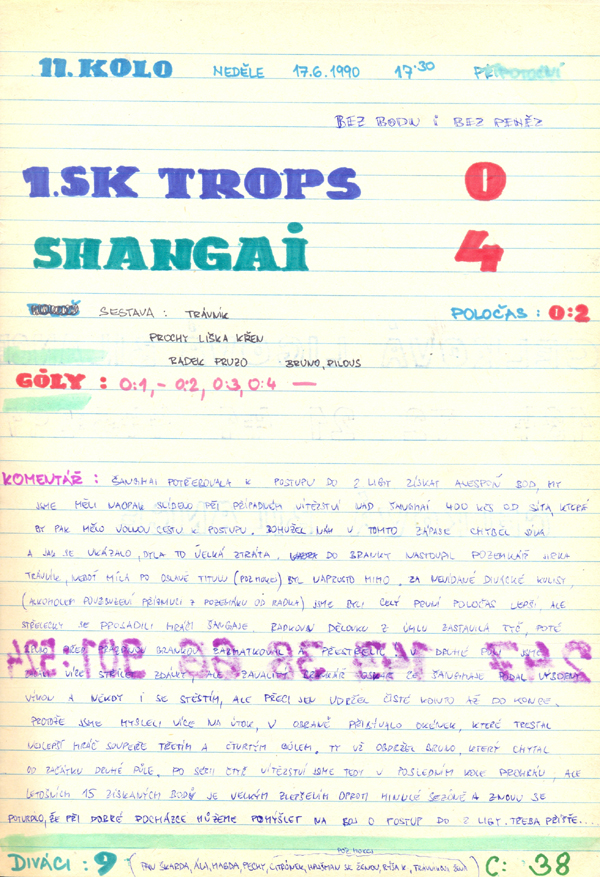 11. KOLO NEDĚLE 17.6.1990 17.30
BEZ BODU i BEZ PENĚZ
1.SK TROPS 0
SHANGAi 4
SESTAVA : TRÁVNÍK POLOČAS : 0:2
PROCHY LIŠKA KŘEN
RADEK PRUZO BRUNO, PILOUS
GÓLY : 0:1, - 0:2, 0:3, 0:4 —
KOMENTÁŘ : ŠANGHAI POTŘEBOVALA K POSTUPU DO 2 LIGY ZÍSKAT ALESPOŇ BOD, MY
JSME MĚLI NAOPAK SLÍBENO PŘI PŘÍPADNÉM VÍTĚZSTVÍ NAD ŠANGHAI 400 KČS OD SÍTA, KTERÁ
BY PAK MĚLO VOLNOU CESTU K POSTUPU. BOHUŽEL NÁM V TOMTO ZÁPASE CHYBĚL
A JAK SE UKÁZALO, BYLA TO VELKÁ ZTRÁTA. DO BRANKY NASTOUPIL POZEMKÁŘ JIRKA
TRÁVNÍK, NEBOŤ MÍLA PO OSLAVĚ TITULU (POZ HOKEJ) BYL NAPROSTO MIMO. ZA NEVÍDANÉ DIVÁCKÉ KULISY
(ALKOHOLEM POVZBUZENÍ PŘÍŠNUVŠÍ Z POZEMÁKU OD RADKA) JSME BYLI CELÝ PRVNÍ POLOČAS LEPŠÍ, ALE
STŘELECKY SE PROSADILI HRÁČI ŠANGAJE. RADKOVU DĚLOVKU Z ÚHLU ZASTAVILA TYČ, POTÉ
BRUNO PŘED PRÁZDNOU BRANKOU ZAŠMATKOVAL A PŘESTŘELIL. V DRUHÉ PŮLI JSME
VÍCE STŘÍLELI ZDÁLKY, ALE ZAVALITÝ BRANKÁŘ ŠANGHAJE PODAL VÝBORNÝ
VÝKON A NĚKDY I SE ŠTĚSTÍM, ALE PŘECI JEN UDRŽEL ČISTÉ KONTO AŽ DO KONCE.
PROTOŽE JSME MYSLELI VÍCE NA ÚTOK, V OBRANĚ PŘIBÝVALO OKÉNEK, KTERÉ TRESTAL
NEJLEPŠÍ HRÁČ SOUPEŘE TŘETÍM A ČTVRTÝM GÓLEM. TY UŽ OBDRŽEL BRUNO, KTERÝ CHYTAL
OD ZAČÁTKU DRUHÉ PŮLE. PO SÉRII ČTYŘ VÍTĚZSTVÍ JSME TEDY V POSLEDNÍM KOLE PROHRÁLI, ALE
LETOŠNÍCH 15 ZÍSKANÝCH BODŮ JE VELKÝM ZLEPŠENÍM OPROTI MINULÉ SEZÓNĚ A ZNOVU SE
POTVRDILO, ŽE PŘI DOBRÉ DOCHÁZCE MŮŽEME POMÝŠLET NA BOJ O POSTUP DO 2 LIGY. TŘEBA PŘÍŠTĚ...
POZ HOKEJ
DIVÁCI : 9 (PAN ŠKARDA, ÁLA, MAGDA, PECKY, CITRÓNEK, HAUSMAN SE ŽENOU, RÝŠA K., TRÁVNÍKOVÁ, ) C: 38